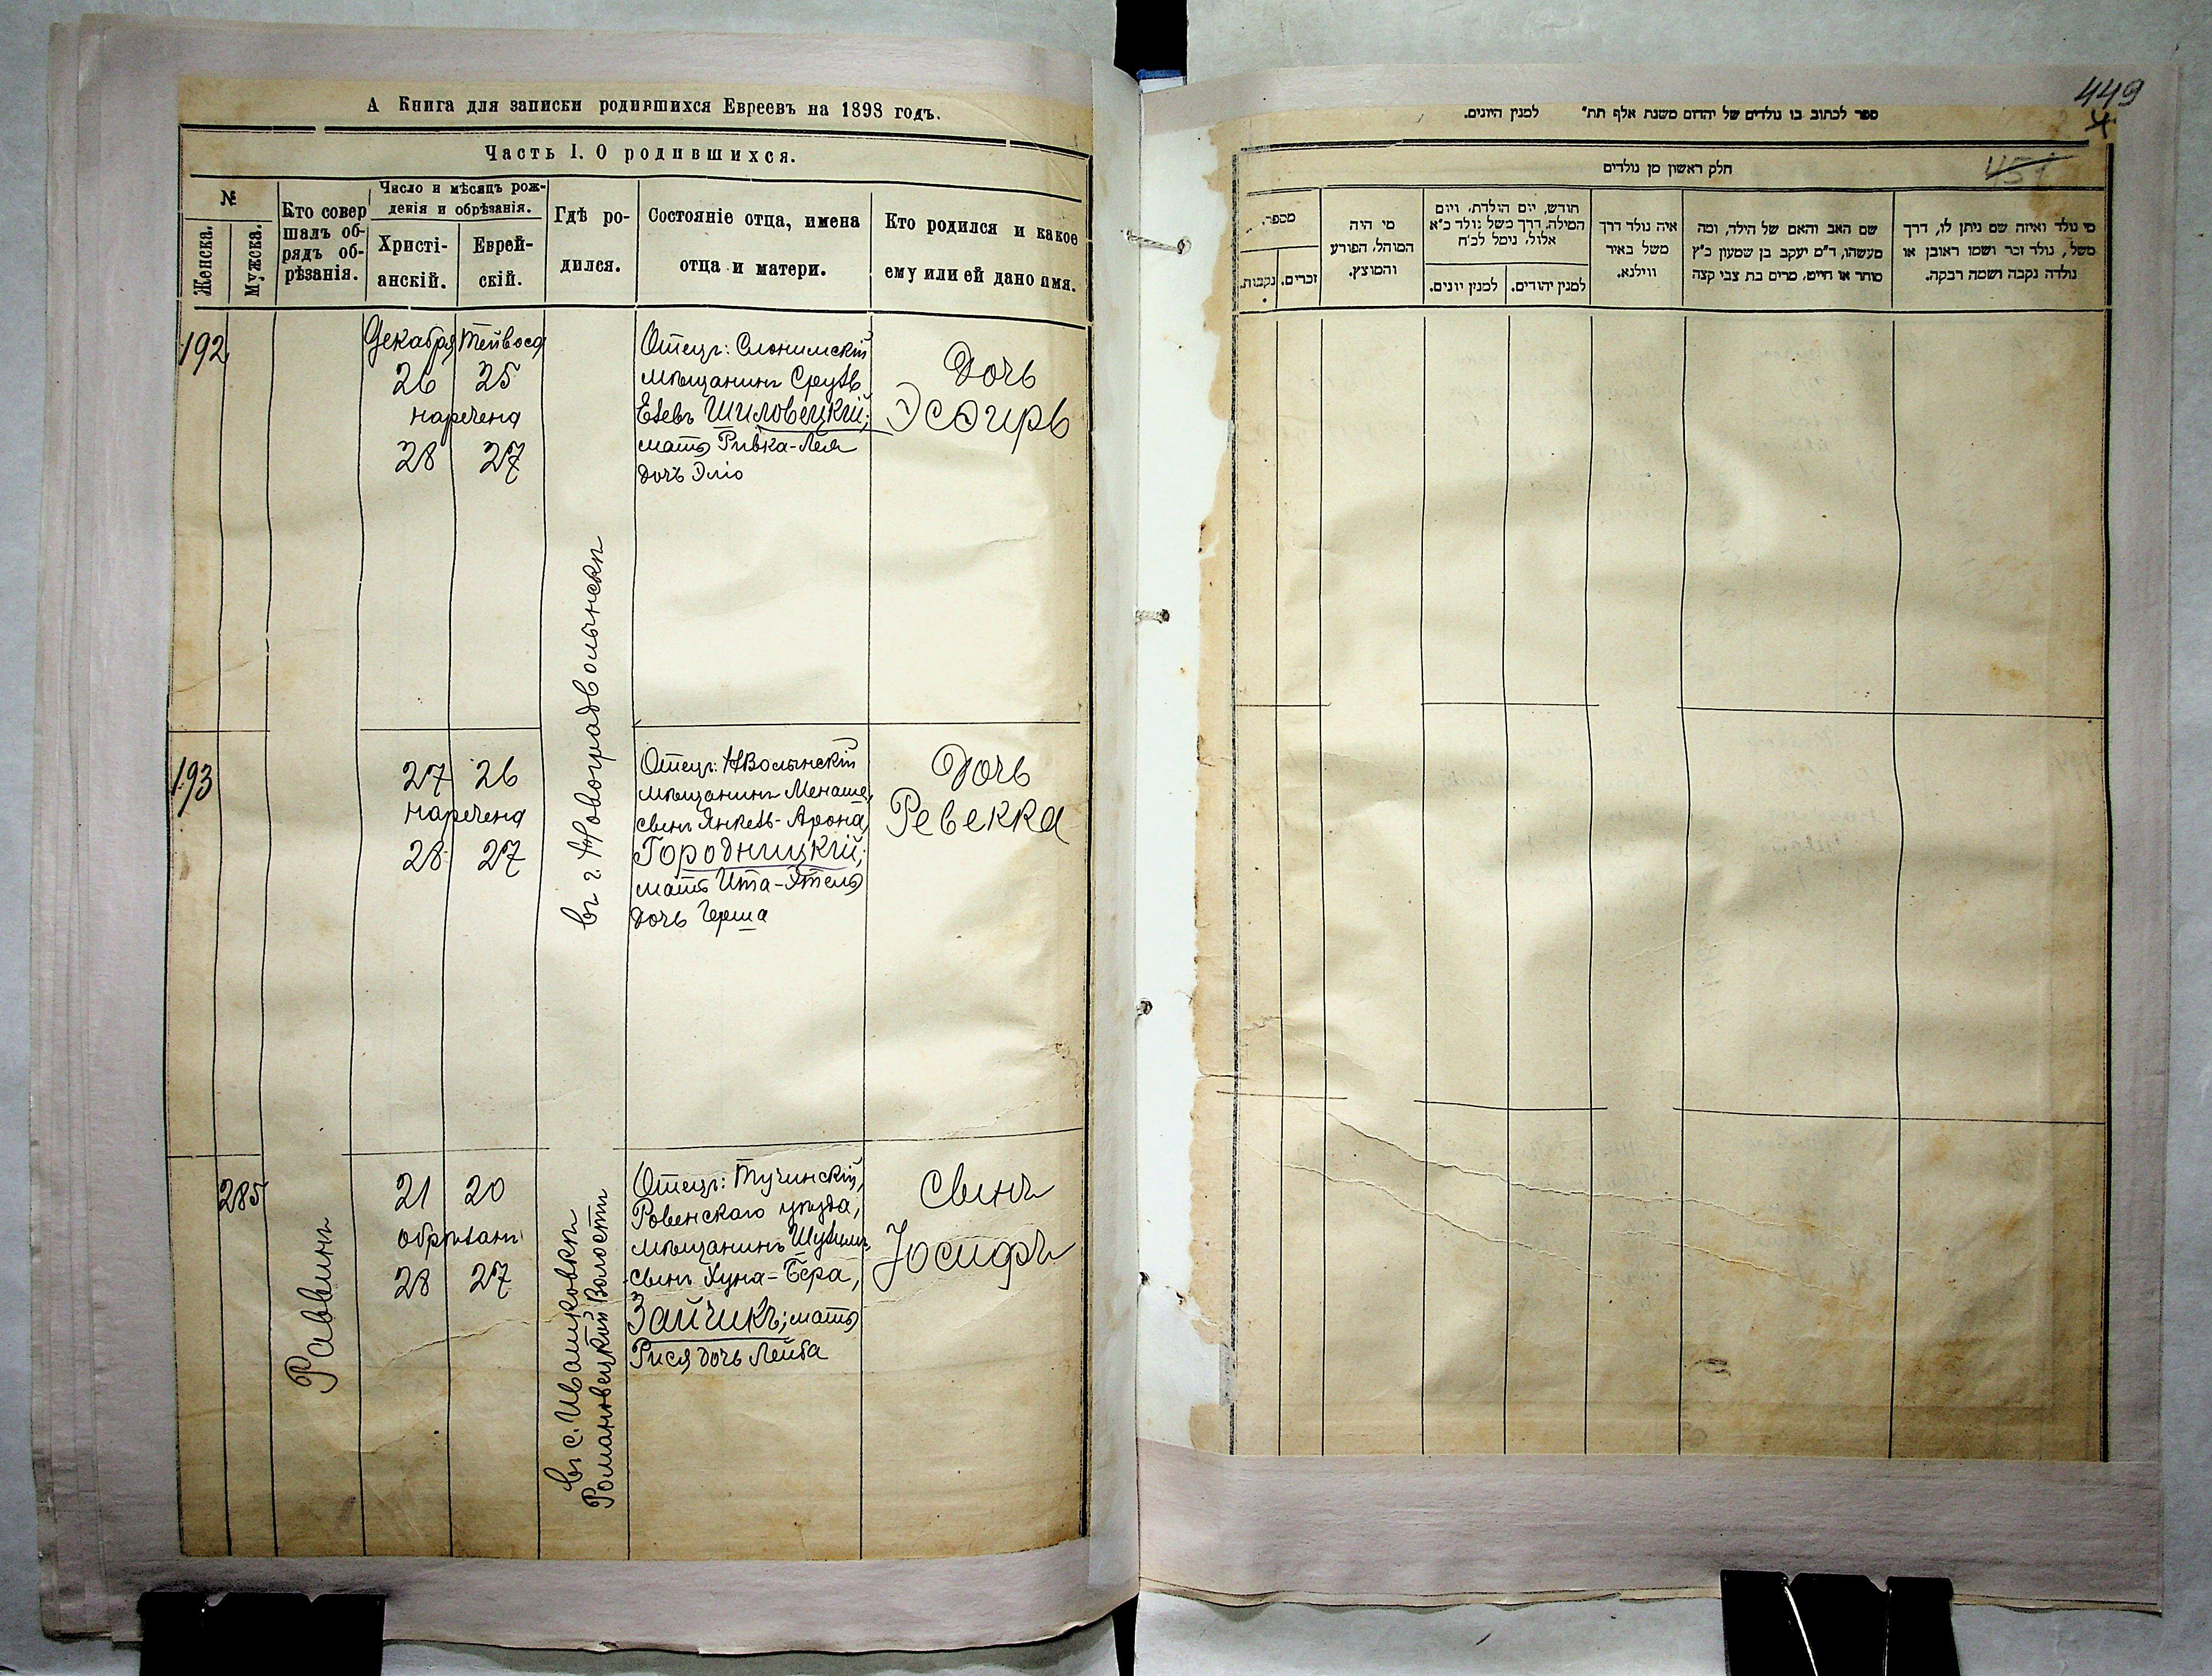 А Книга для записки родившихся Евреевъ на 1898 годъ.
Часть I. О родившихся.
№
Женска.
Мужска.
Кто совер
шалъ об-
рядъ об-
рѣзанія.
Число и мѣсяцъ рож-
денія и обрѣзанія.
Христі-
анскій.
Еврей-
скій.
Гдѣ ро-
дился.
Состояніе отца, имена
отца и матери.
Кто родился и какое
ему или ей дано имя.
192
Декабря
26
наречена
28
25
27
Отецъ: Слонимскій
мѣщанинъ
Шиловецкій;
мать Ривка-Лея
дочь Эліо
Дочь
Эсѳирь
въ г. Новоградволынскѣ
193
27 26
наречена
28 27
Отецъ: НВолынскій
мѣщанинъ Менаше,
сынъ Янкель-Арона
Городницкій;
мать Ита-Этель
дочь Герша
Дочь
Ревекка
285
Раввинъ
21 20
обрѣзанъ
28 27
въ с. Ивашковкѣ
Романовецкой Волости
Отецъ: Тучинскій,
Ровенскаго уѣзда,
мѣщанинъ
сынъ Хуна-Бера,
Зайчикъ; мать
Рися дочь Лейба
Сынъ
Іосифъ
449
451
ספר לכתוב בו נולדים של יהדום משנת אלף תת" למנין היונים.
חלק ראשון מן נולדים
מספר.
נקבות.
זכרים.
מי היה
המוהל, הפורע
והמוצץ.
חודש, יום הולדת, ויום
המילה, דרך משל נולד כ"א
אלול, נימל לכ"ח
למנין יונים.
למנין יהודים.
איה נולד דרך
משל באיר
ווילנא.
שם האב והאם של הילד, ומה
מעשהו, ד"מ יעקב בן שמעון כ"ץ
סוחר או חייט, מרים בת צבי קצה
מי נולד ואיזה שם ניתן לו, דרך
משל, נולד זכר ושמו ראובן או
נולדה נקבה ושמה רבקה.